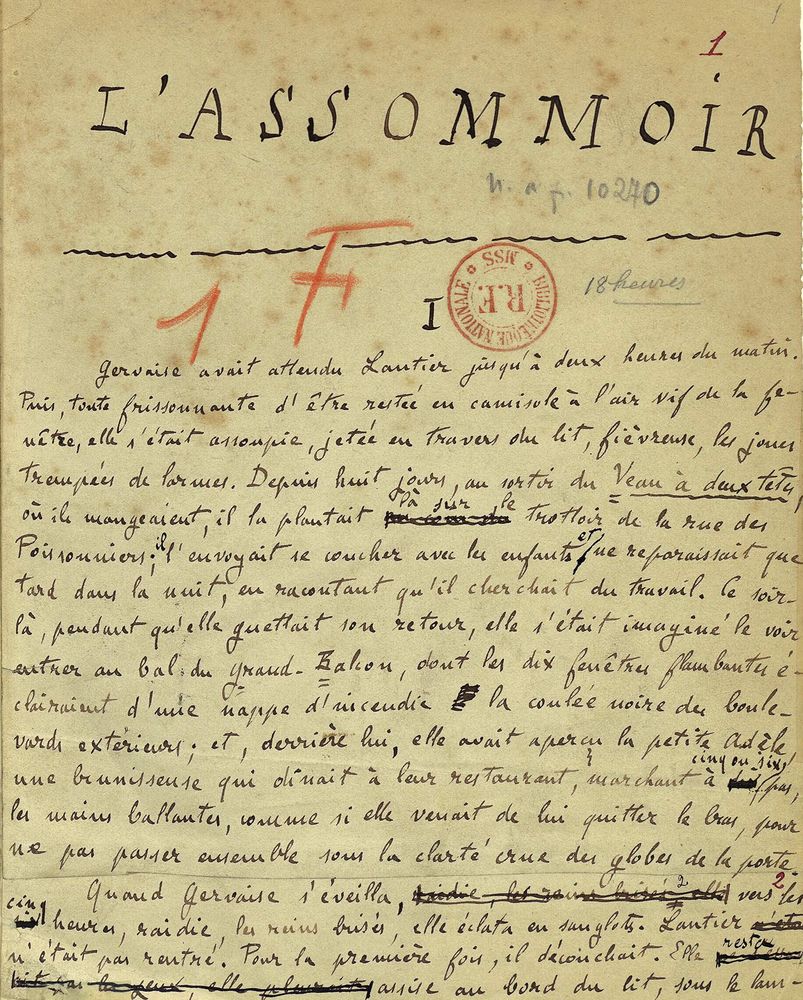 1
1
L'ASSOMMOIR
n. a f. 10270
1 F
BIBLIOTHÈQUE NATIONALE MSS R.F.
18 heures
I
Gervaise avait attendu Lantier jusqu'à deux heures du matin.
Puis, toute frissonnante d'être restée en camisole à l'air vif de la fe-
nêtre, elle s'était assoupie, jetée en travers du lit, fièvreuse, les joues
trempées de larmes. Depuis huit jours, au sortir du Veau à deux têtes,
où ils mangeaient, il la plantait là sur le trottoir de la rue des
Poissonniers; il l'envoyait se coucher avec les enfants et ne reparaissait que
tard dans la nuit, en racontant qu'il cherchait du travail. Ce soir-
là, pendant qu'elle guettait son retour, elle s'était imaginé le voir
entrer au bal du Grand-Balcon, dont les dix fenêtres flambantes é-
clairaient d'une nappe d'incendie la coulée noire des boule-
vards extérieurs; et, derrière lui, elle avait aperçu la petite Adèle,
une brunisseuse qui dînait à leur restaurant, marchant à cinq ou six pas,
les mains ballantes, comme si elle venait de lui quitter le bras, pour
ne pas passer ensemble sous la clarté crue des globes de la porte.
Quand Gervaise s'éveilla, raidie, les reins brisés, elle vers 2 les
cinq heures, raidie, les reins brisés, 2 elle éclata en sanglots. Lantier
n'était pas rentré. Pour la première fois, il découchait. Elle resta
assise au bord du lit, sous le lam-